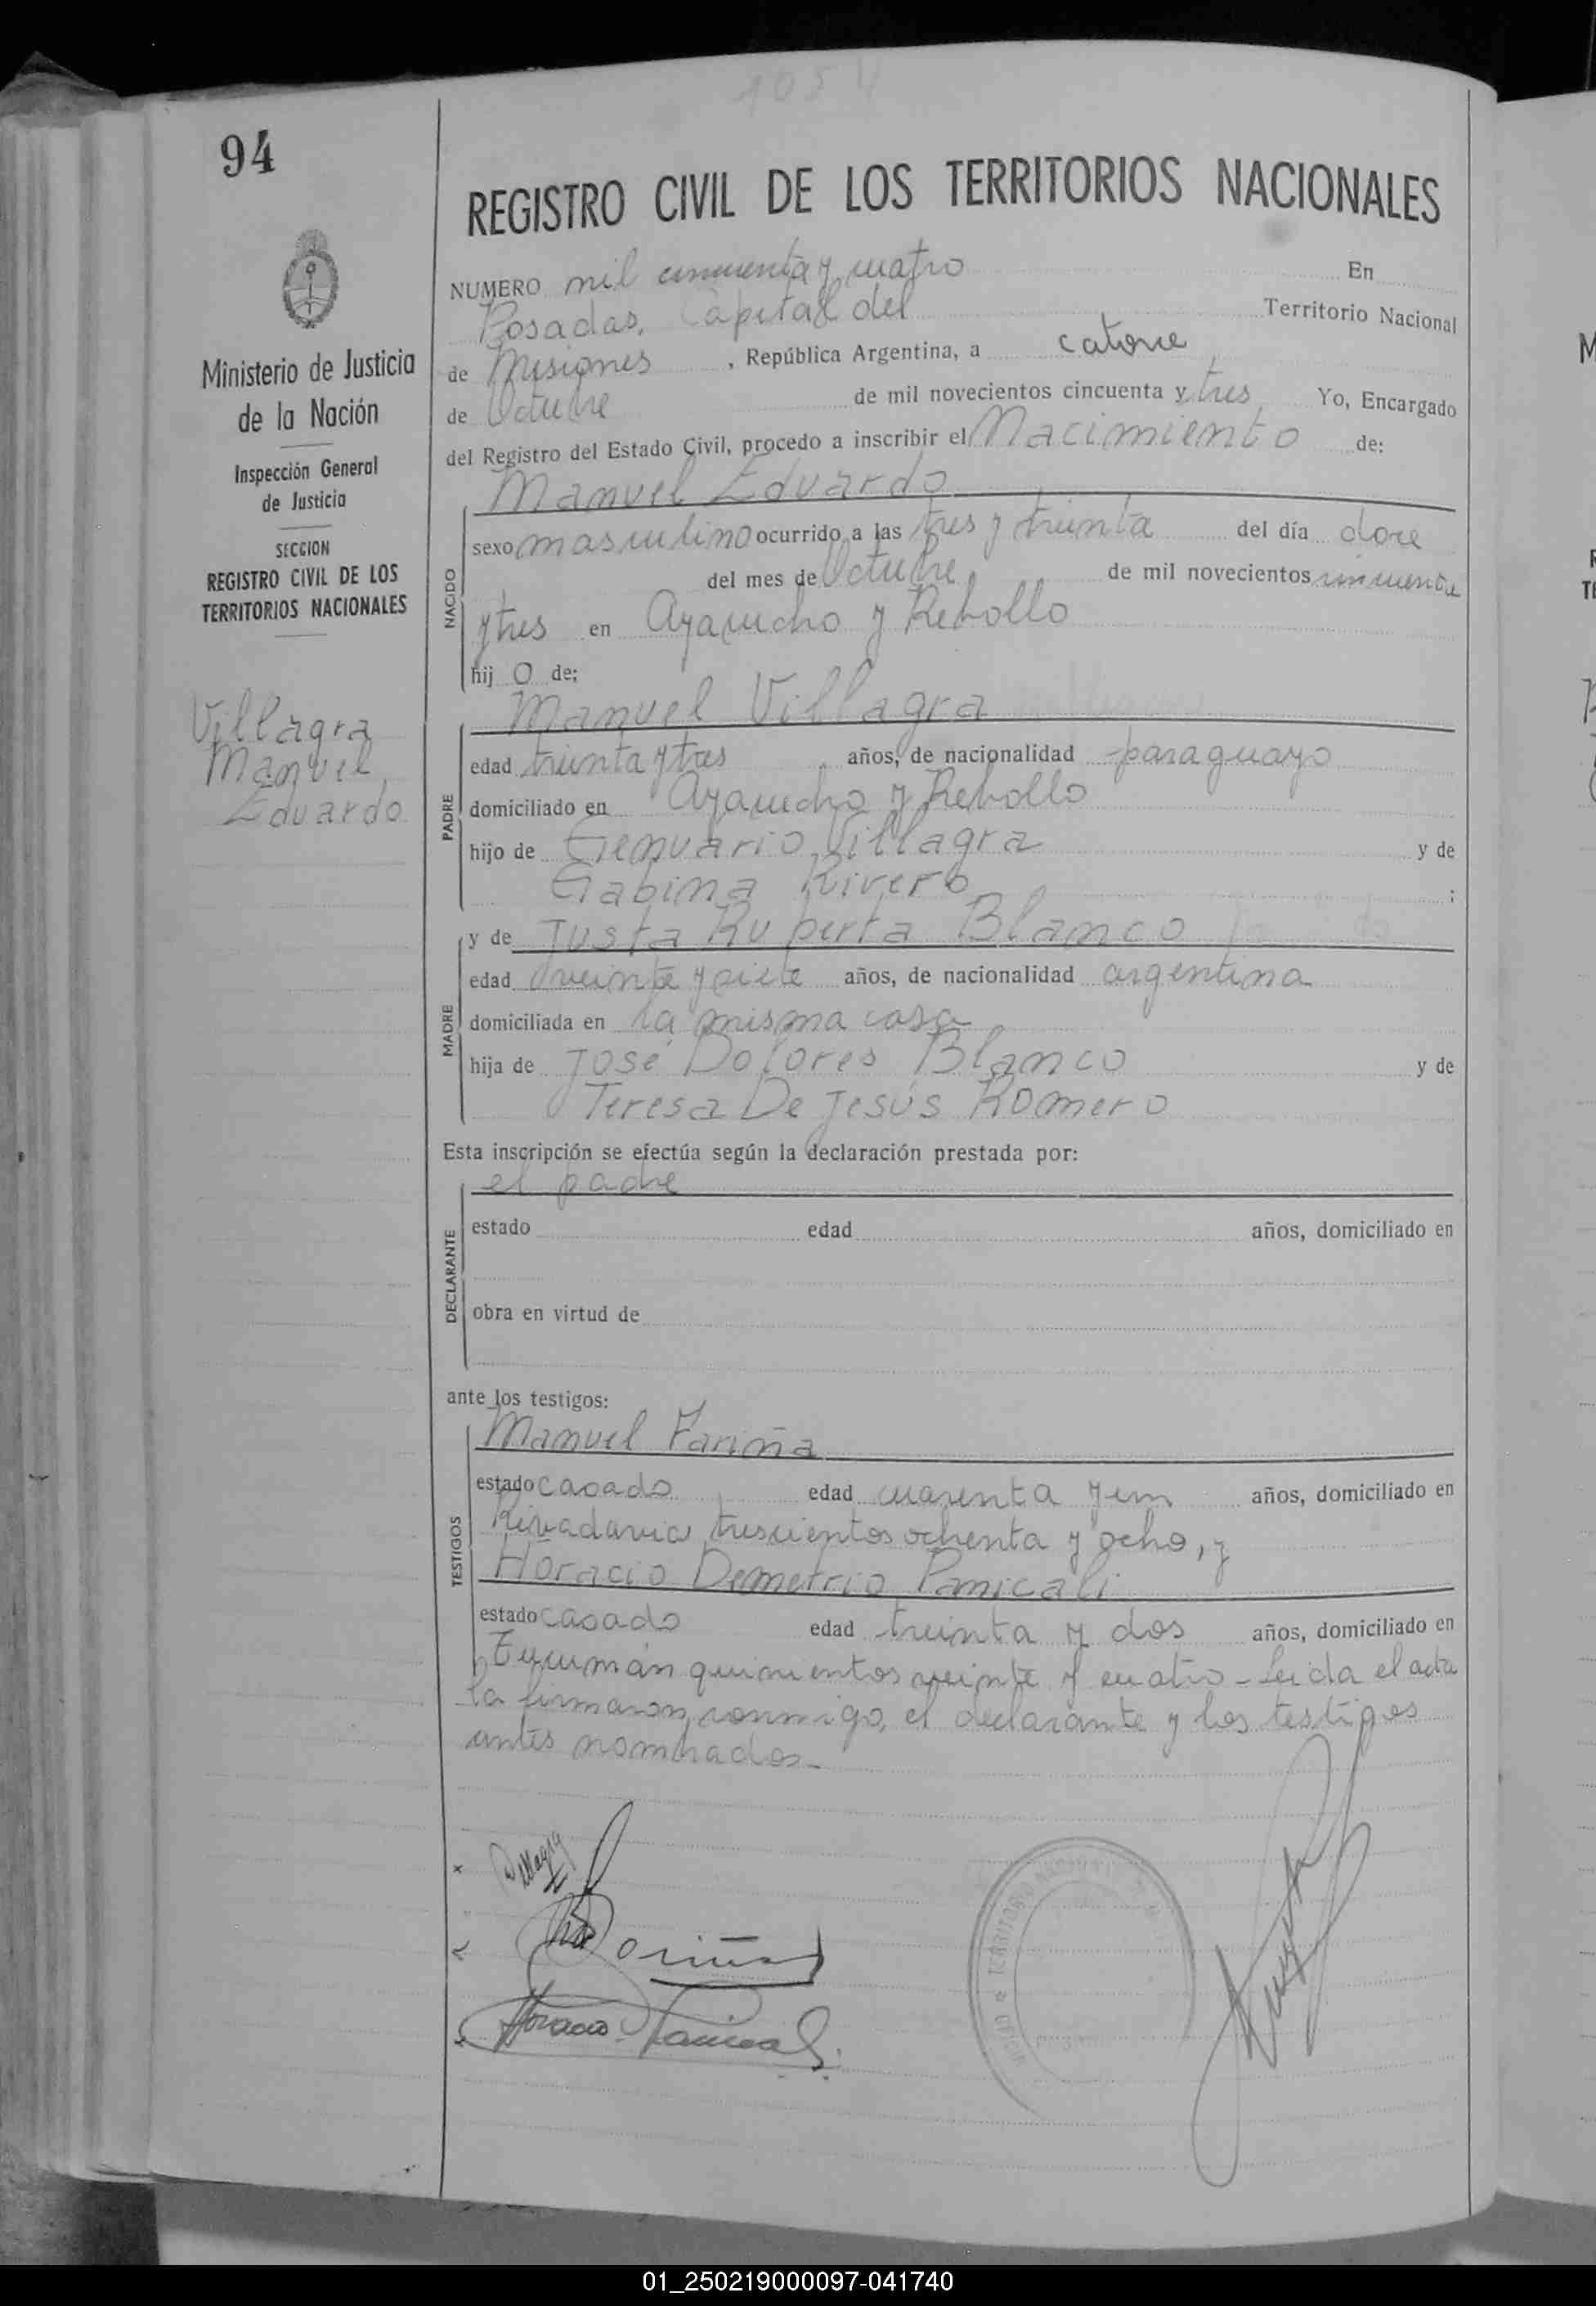 1054
94
REGISTRO CIVIL DE LOS TERRITORIOS NACIONALES
NUMERO mil cincuenta y cuatro En
Posadas, Capital del Territorio Nacional
de Misiones, República Argentina, a catorce
de Octubre de mil novecientos cincuenta y tres, Yo, Encargado
del Registro del Estado Civil, procedo a inscribir el Nacimiento de:
Manuel Eduardo
sexo masculino ocurrido a las tres y treinta del día doce
del mes de Octubre, de mil novecientos cincuenta
y tres en Ayacucho y Rebollo
hijo de;
NACIDO
Manuel Villagra
edad treinta y tres años, de nacionalidad paraguayo
domiciliado en Ayacucho y Rebollo
hijo de Genuario Villagra y de
Gabina Rivero ;
PADRE
y de Justa Ruperta Blanco
edad veinte y siete años, de nacionalidad argentina
domiciliada en la misma casa
hija de José Dolores Blanco y de
Teresa De Jesús Romero
MADRE
Esta inscripción se efectúa según la declaración prestada por:
el padre
estado edad años, domiciliado en
obra en virtud de
DECLARANTE
ante los testigos:
Manuel Fariña
estado casado edad cuarenta y un años, domiciliado en
Rivadavia trescientos ochenta y ocho, y
Horacio Demetrio Panicali
estado casado edad treinta y dos años, domiciliado en
Tucumán quinientos veinte y cuatro - Leída el acta
la firmaron, conmigo, el declarante y los testigos
antes nombrados.-
TESTIGOS
Ministerio de Justicia
de la Nación
Inspección General
de Justicia
SECCION
REGISTRO CIVIL DE LOS
TERRITORIOS NACIONALES
Villagra
Manuel
Eduardo
Villagra
Fariña
Horacio Panicali
01_250219000097-041740